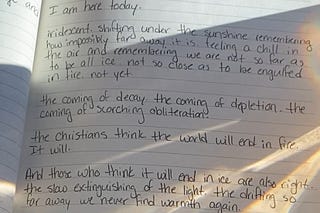 I am here today.
iridescent. shifting under the sunshine remembering
how impossibly far away it is. feeling a chill in
the air and remembering we are not so far as
to be all ice. not so close as to be engulfed
in fire. not yet.
the coming of decay. the coming of depletion. the
coming of scorching obliteration.
the christians think the world will end in fire.
It will.
And those who think it will end in ice are also right.
the slow extinguishing of the light. the drifting so
far away we never find warmth again.